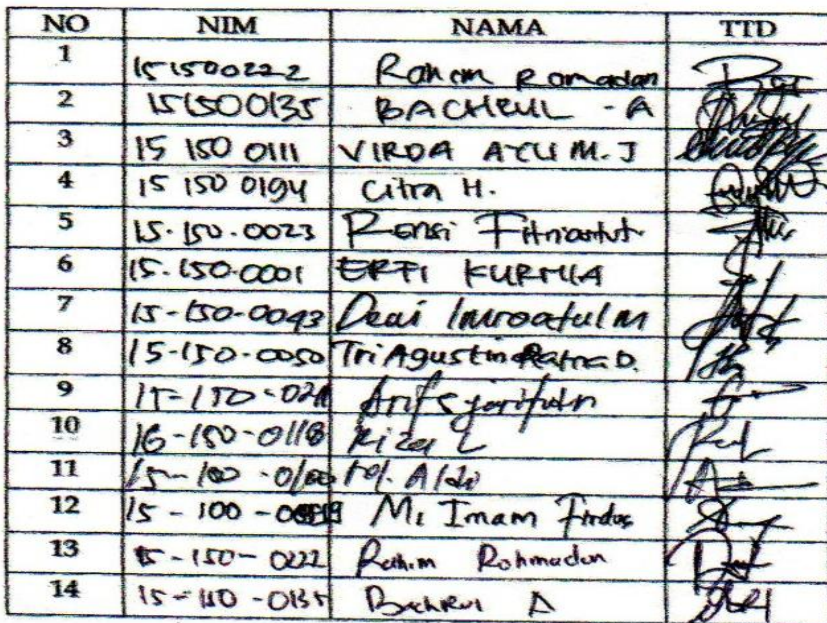 NO NIM NAMA TTD
1 151500222 Rahim Romadan
2 151500135 BACHRUL - A
3 15 150 0111 VIRDA AYU M. J
4 15 150 0194 Citra H.
5 15.150.0023 Rensi Fitriastut.
6 15.150.0001 ERTI KURNIA
7 15-150-0093 Dewi Imroatul M
8 15-150-0050 Tri Agustin Ratna D.
9 Arif syarifudn
10 16-150-0118 Riza L
11 15-100-0100 M. Aldi
12 15-100- M. Imam Firdus
13 15-150-0222 Rahim Rohmadon
14 15-150-0135 Bachrul A